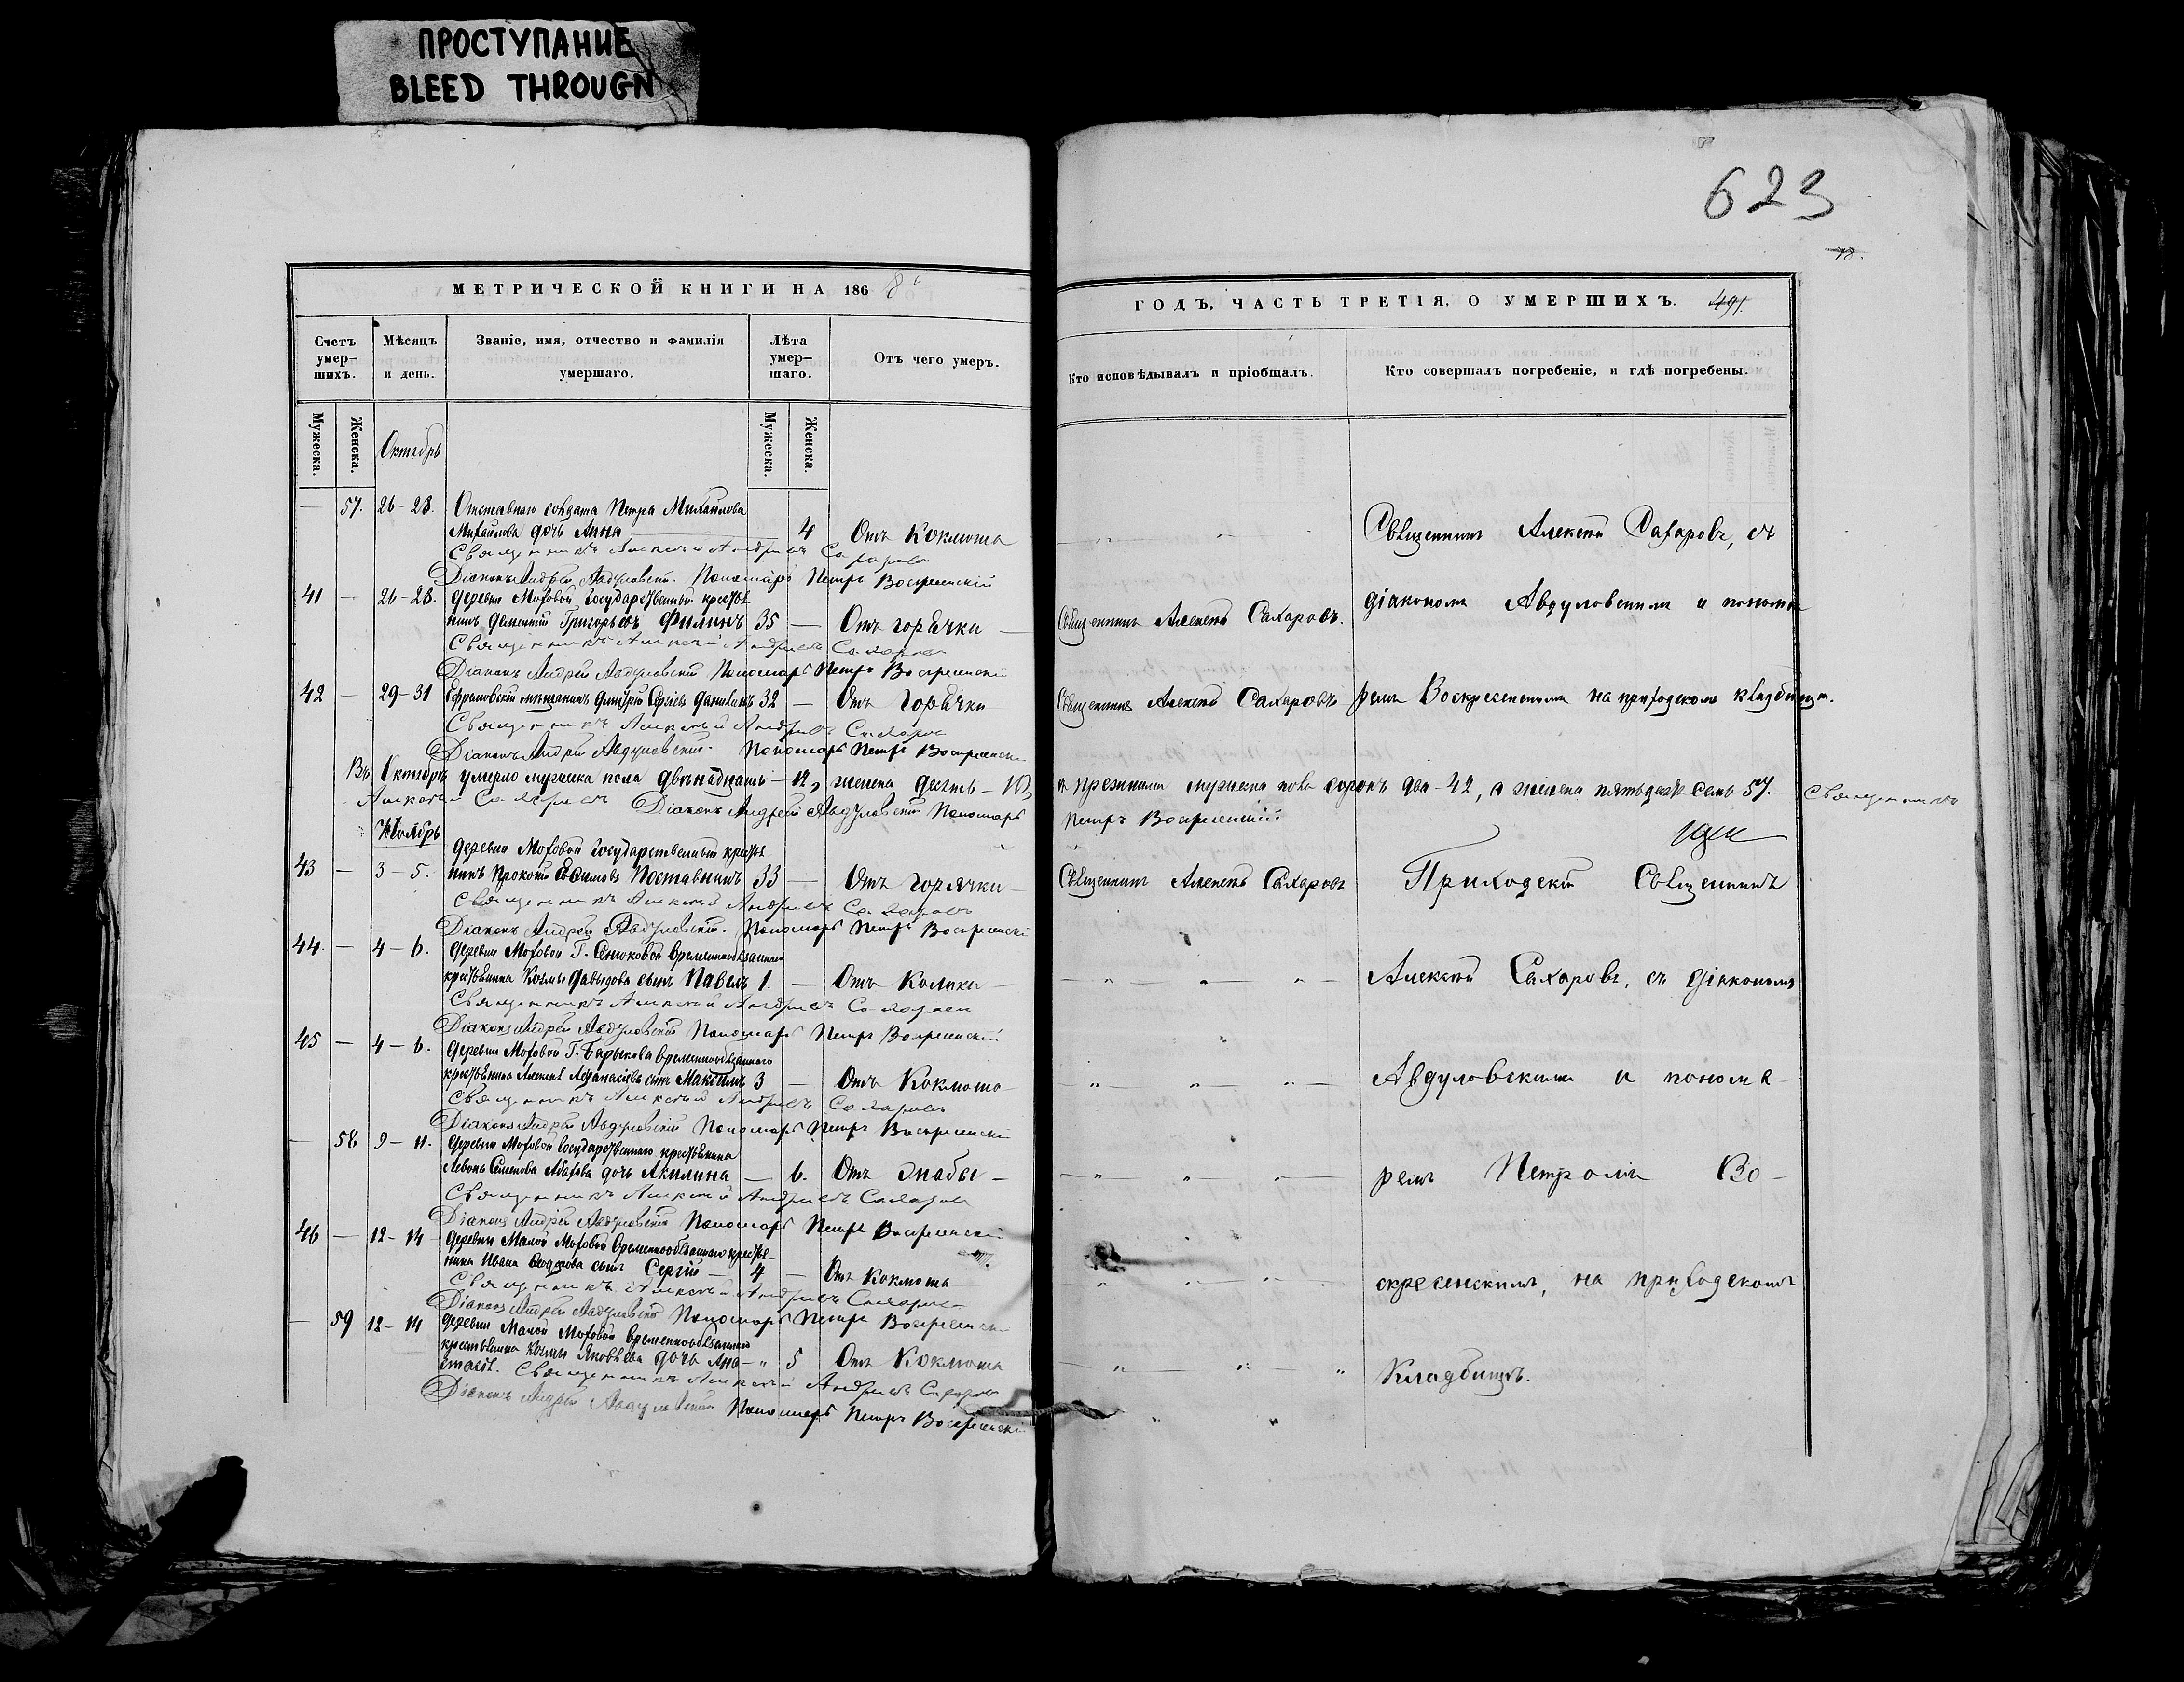 ПРОСТУПАНИЕ
BLEED THROUGN
623
78.
МЕТРИЧЕСКОЙ КНИГИ НА 186 8
ГОДЪ, ЧАСТЬ ТРЕТІЯ, О УМЕРШИХЪ. 491.
Счетъ умер-шихъ.
Мѣсяцъ и день.
Званіе, имя, отчество и фамилія умершаго.
Лѣта умер-шаго.
Отъ чего умеръ.
Кто исповѣдывалъ и пріобщалъ.
Кто совершалъ погребеніе, и гдѣ погребены.
Мужеска. Женска.
Октябрь
Мужеска. Женска.
— 57. 26-28. Отставнаго солдата Петра Михайлова
Михайлова дочь Анна 4 Отъ Коклюша
Священникъ Алексѣй Андреевъ Сахаровъ
Діаконъ Андрей Авдуловскій. Пономарь Петръ Воскресенскій
Священникъ Алексѣй Сахаровъ, съ
41 — 26-28. Деревни Моховой Государственный крестья
нинъ Григорьевъ Филинъ 35 — Отъ горячки —
Священникъ Алексѣй Сахаровъ.
діакономъ Авдуловскимъ и понома
Священникъ Алексѣй Андреевъ Сахаровъ
Діаконъ Андрей Авдуловскій Пономарь Петръ Воскресенскій
42 — 29-31 Ефремовскій мѣщанинъ Дмитрій Сергѣевъ Данилинъ 32 — Отъ Горячки
Священникъ Алексѣй Сахаровъ
ремъ Воскресенскимъ на приходскомъ кладбищѣ.
Священникъ Алексѣй Андреевъ Сахаровъ
Діаконъ Андрей Авдуловскій. Пономарь Петръ Воскресенскій
Въ Октябрѣ умерло мужеска пола двѣнадцать — 12, женска десять — 10,
съ прежними мужеска пола сорокъ два - 42, а женска пятьдесятъ семь 57.
Священникъ
Алексѣй Сахаровъ Діаконъ Андрей Авдуловскій Пономарь
Петръ Воскресенскій.
Ноябрь
43 — 3-5. Деревни Моховой Государственный крестья
нинъ Прокопій Поставнинъ 33 — Отъ горячки —
Священникъ Алексѣй Сахаровъ
Приходскій Священникъ
Священникъ Алексѣй Андреевъ Сахаровъ
Діаконъ Андрей Авдуловскій. Пономарь Петръ Воскресенскій
44. — 4-6. Деревни Моховой Г. Сенюковой временнообязаннаго
крестьянина Козмы Давыдова сынъ Павелъ 1. — Отъ Колики —
Алексѣй Сахаровъ, съ діакономъ
Священникъ Алексѣй Андреевъ Сахаровъ
Діаконъ Андрей Авдуловскій Пономарь Петръ Воскресенскій
45 — 4-6. Деревни Моховой Г. Барыкова временнообязаннаго
крестьянина Алексѣя Афанасіева сынъ Максимъ 3 — Отъ Коклюша —
Авдуловскимъ и понома-
Священникъ Алексѣй Андреевъ Сахаровъ
Діаконъ Андрей Авдуловскій Пономарь Петръ Воскресенскій
— 58 9-11. Деревни Моховой Государственнаго крестьянина
Левона Семенова дочь Акилина — 6. Отъ —
ремъ Петромъ Во-
Священникъ Алексѣй Андреевъ Сахаровъ
Діаконъ Андрей Авдуловскій Пономарь Петръ Воскресенскій
46 — 12-14 Деревни Малой Моховой временнообязаннаго крестья-
нина Ивана сынъ Сергій — 4 — Отъ Коклюша
скресенскимъ, на приходскомъ
Священникъ Алексѣй Андреевъ Сахаровъ
Діаконъ Андрей Авдуловскій Пономарь Петръ Воскресенскій
— 59 12-14 Деревни Малой Моховой временнообязаннаго
крестьянина Козмы Яковлева дочь Ана- 5 Отъ Коклюша
Кладбищѣ.
стасія. Священникъ Алексѣй Андреевъ Сахаровъ
Діаконъ Андрей Авдуловскій Пономарь Петръ Воскресенскій